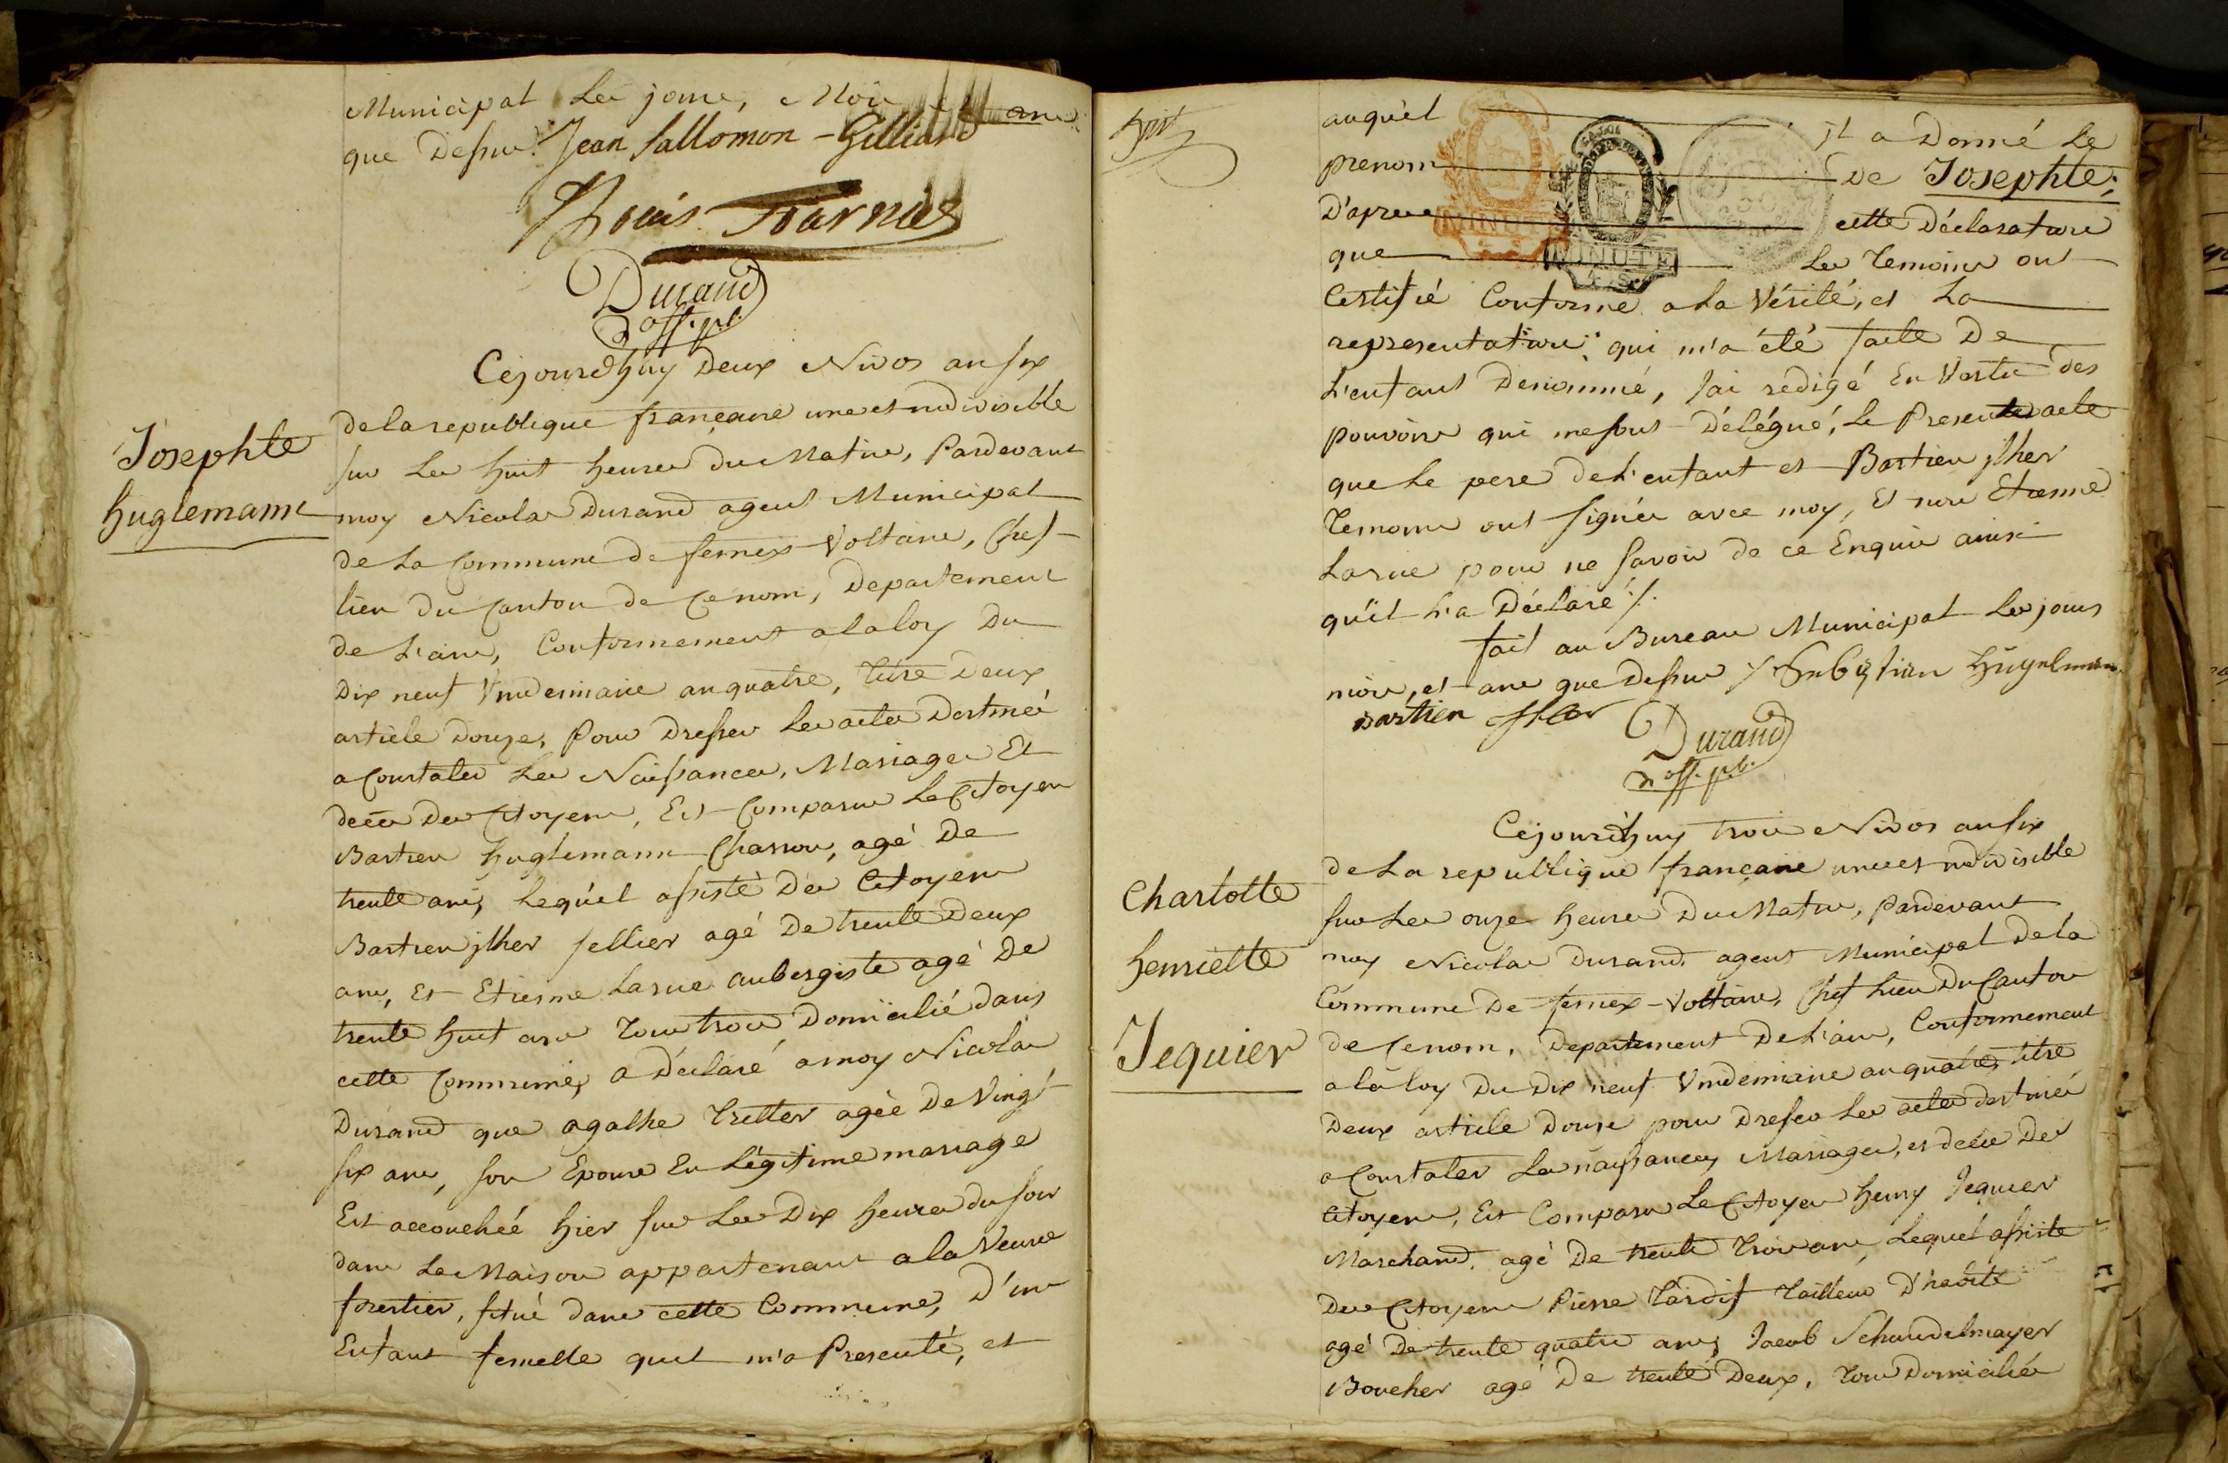 Municipal les jours, Mois et ans
que Dessus. Jean Sallomon - Gilliard
Louis Fournier
Durand
off. pb.
Cejourdhuy Deux Nivos an six
Josephte
huglemann
de la republique françaire une et indivisible
sur les huit heures du Matin, Pardevant
moy Nicolas Durand agent Municipal
de la Commune de fernex-Voltaire, Chef-
lieu du Canton de Ce nom, Departement
de L'ain, Conformement a la loy Du
Dix neuf Vindemiaire an quatre, titre Deux
article Douze, Pour Dresser les actes Destinés
a Constater les Naissances, Mariages Et
décès Des Citoyens, Est Comparu Le Citoyen
Bastien huglemann Charron, agé De
trente ans, Lequel assisté Des Citoyens
Bastien jlher sellier agé De trente Deux
ans, Et Etienne Larue aubergiste agé De
trente huit ans Tous trois Domicilié dans
cette Commune, a Déclaré a moy Nicolas
Durand que agathe Tretter agée De Vingt
six ans, son Epouse En Légitime mariage
Est accouchéé hier sur les Dix heures du soir
dans La Maison appartenant a la Veuve
forestier, situé dans cette Commune, D'un
Enfant femelle quil m'a Presenté, et
auquel jl a Donné Le
prenom De Josephte;
D'apres cette Déclaration
que Les Temoins ont
Certifié Conforme a la Vérité, et La
representation qui m'a été faite De
L'enfant Denommé, J'ai rédigé En Vertu des
pouvoirs qui me sont Délégué, Le Present acte
que Le pere De L'enfant et Bastien jlher
Temoins ont signée avec moy, Et non Etienne
Larue pour ne savoir de ce Enquis ainsi
qu'il L'a Déclaré /.
fait au Bureau Municipal Les jours
mois, et ans que Dessus / Sebastian Hügelmann
Bastien Jlher
Durand
off. p.b.
Cejourdhuy trois Nivos an six
Charlotte
henriette
Jequier
de La republique françaire une et indivisible
sur Les onze heures Du Matin, pardevant
moy Nicolas Durand agent Municipal De la
Commune De fernex-Voltaire, Chef Lieu Du Canton
de Ce nom, Departement De L'ain, Conformement
a la loy Du Dix neuf Vindemiaire an quatre, titre
Deux article Douze pour Dresser Les actes destinés
a Constater Les naissances, Mariages, et décès Des
Citoyens, Est Comparu Le Citoyen henry Jequier
Marchand agé De trente Trois ans, Lequel assisté
Des Citoyens Pierre Tardif Tailleur D'habits
agé De trente quatre ans, Jacob Schaudelmayer
Boucher agé De trente Deux, Tous Domiciliés